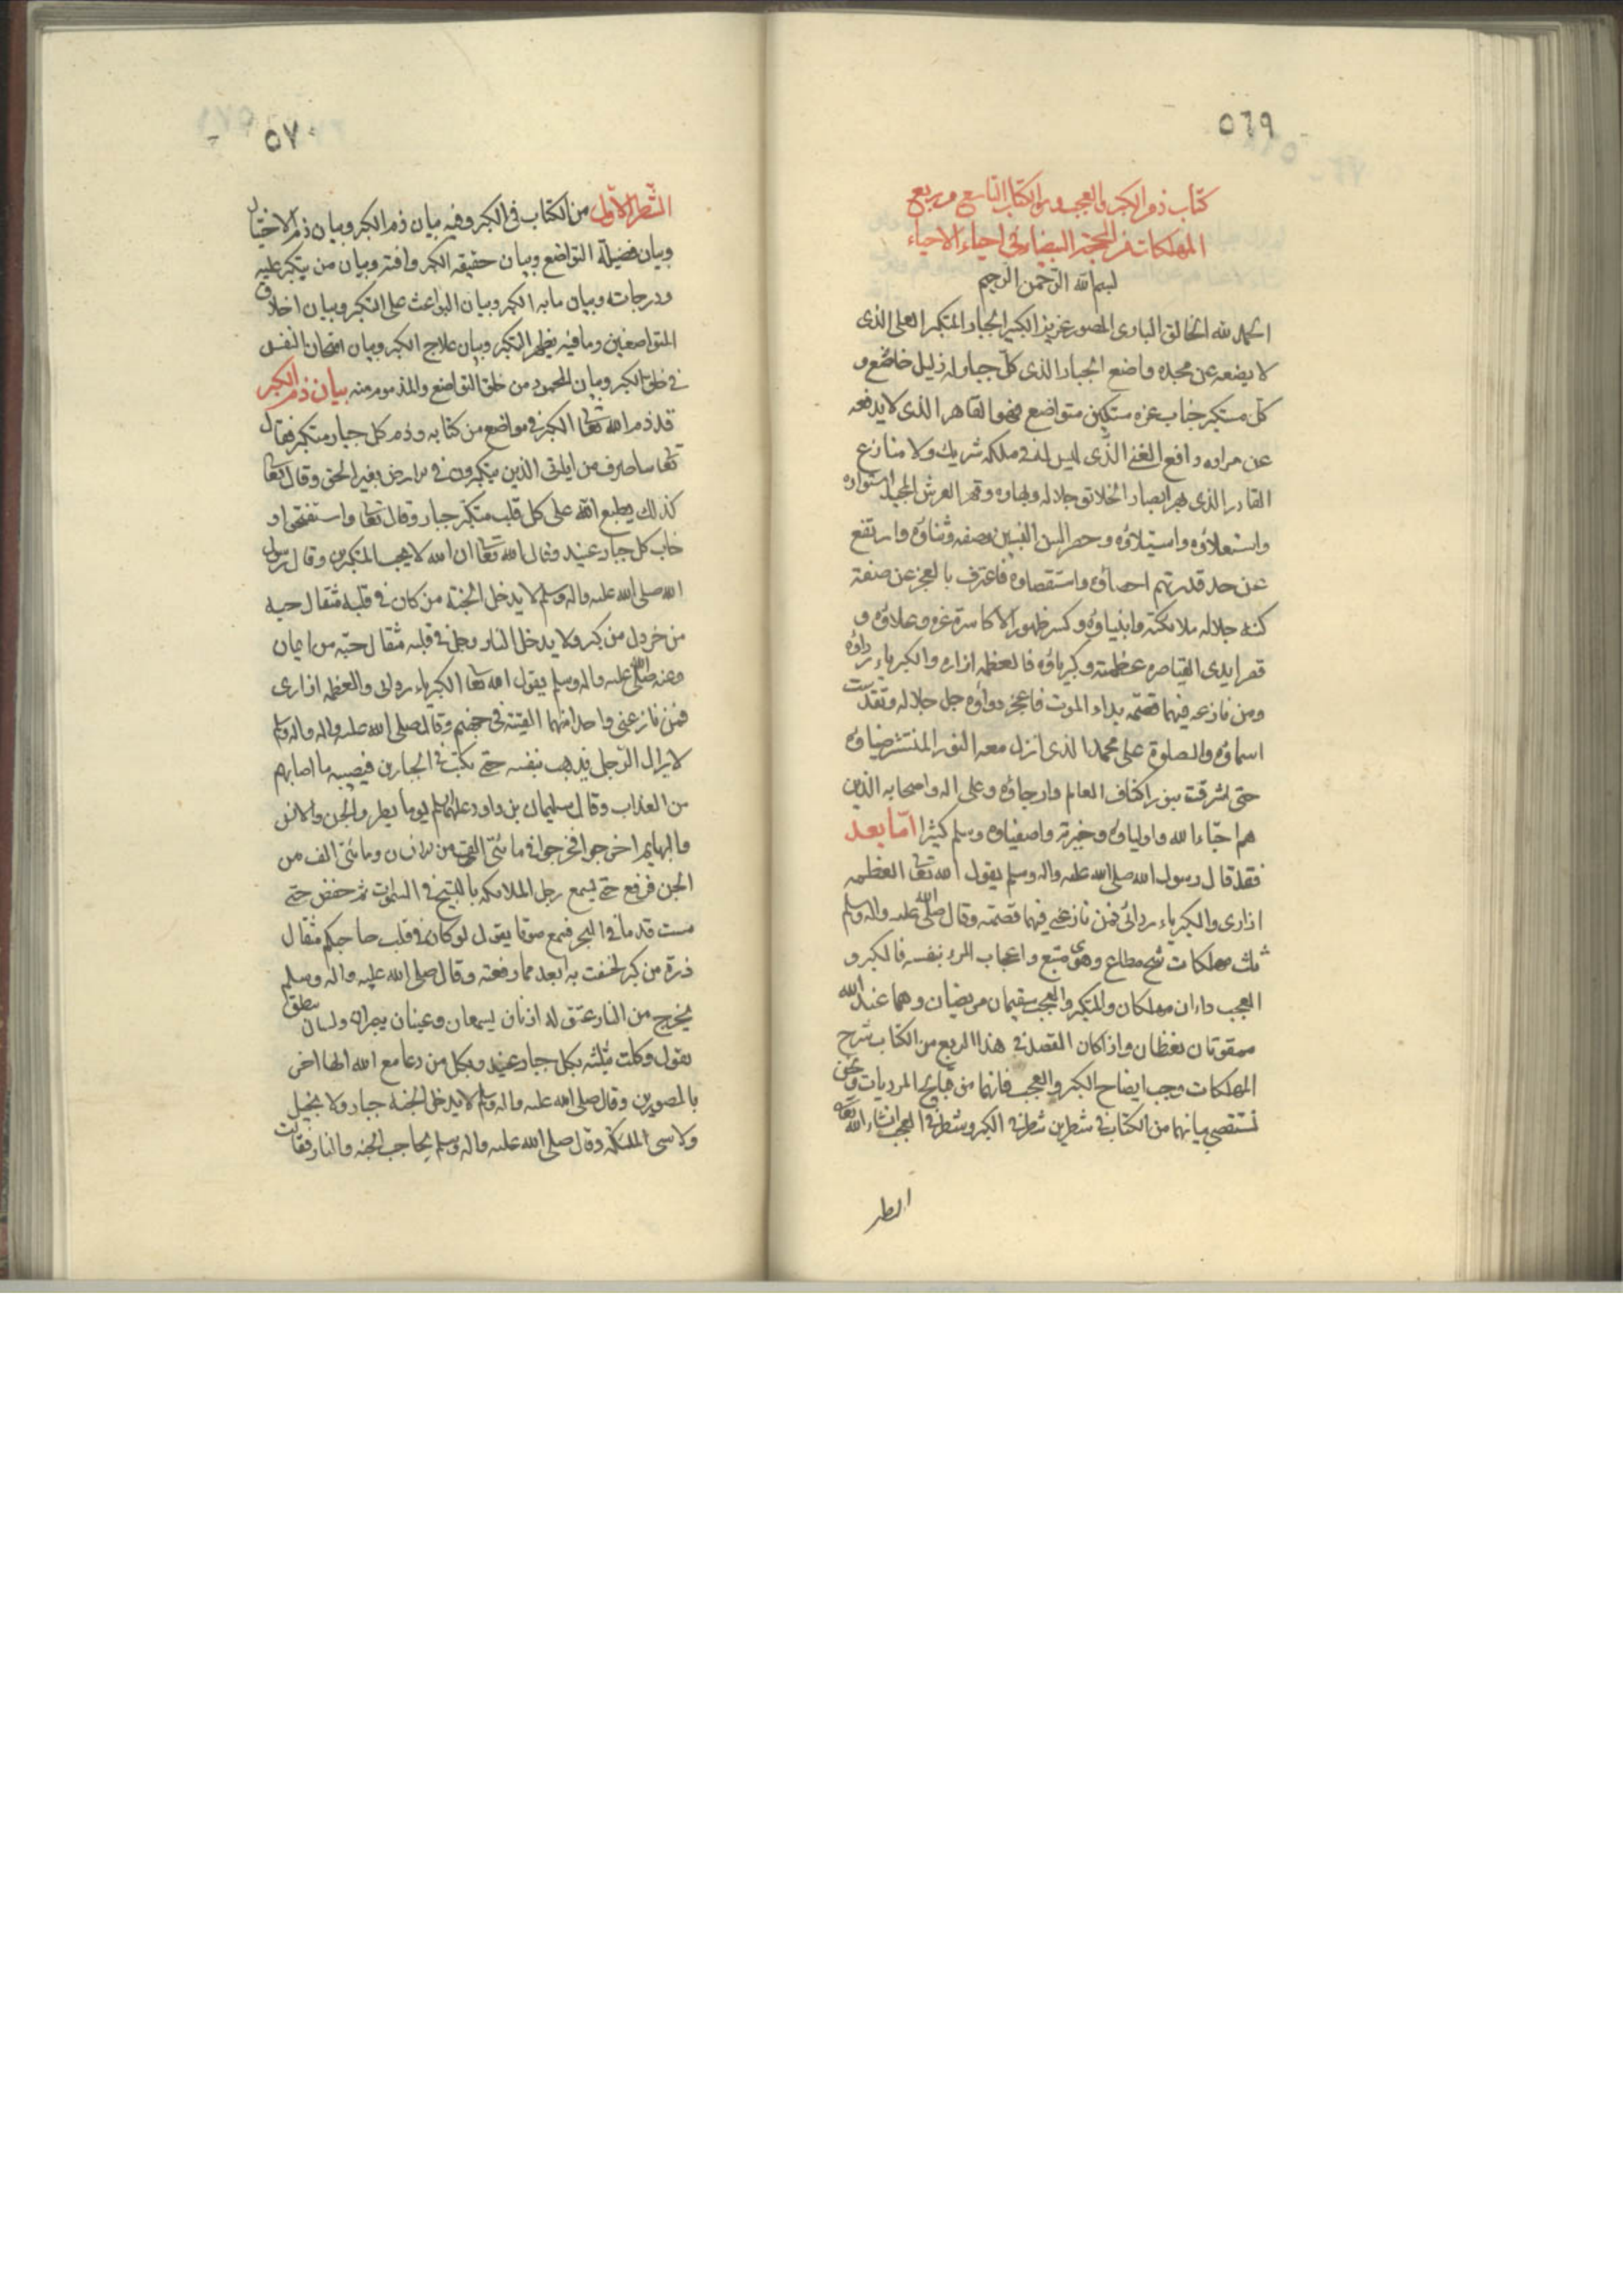 ٥٦٩
كتاب ذم الكبر والعجب وهو الكتاب التاسع من ربع
المهلكات من المحجة البيضاء في احياء الاحياء
بسم الله الرحمن الرحيم
الحمد لله الخالق البارى المصور عزيز الكبير الجبار المتكبر العلى الذى
لا يضعه عن مجده واضع الجبار الذى كل جبار له ذليل خاضع و
كل متكبر جناب عزه مستكين متواضع فهو القاهر الذى لا يدفعه
عن مراده دافع الغنى الذى ليس له فى ملكه شريك ولا منازع
القادر الذى بهر ابصار الخلائق جلاله وبهاؤه وقهر العرش المجيد استواؤه
واستعلاؤه واستيلاؤه وحصر السن النبيين وصفه وثناؤه وارتفع
عن حد قدرتهم احصاؤه واستقصاؤه فاعترف بالعجز عن صفة
كنه جلاله ملائكته وانبياؤه وكسر ظهور الاكاسرة عزه وعلاؤه و
قصر ايدى القياصره عظمته وكبرياؤه فالعظمه ازاره والكبرياء رداؤه
ومن نازعه فيهما قصمه بداء الموت فاعجزه دواؤه جل جلاله وتقدست
اسماؤه والصلوة على محمد الذى انزل معه النور المنتشر ضياؤه
حتى اشرقت بنوره اكناف العالم وارجاؤه وعلى اله واصحابه الذين
هم احباء الله واولياؤه وخيرته واصفياؤه وسلم كثيرا اما بعد
فقد قال رسول الله صلى الله عليه واله وسلم يقول الله تعالى العظمه
ازارى والكبرياء ردائى فمن نازعنى فيهما قصمته وقال صلى الله عليه واله وسلم
ثلث مهلكات شح مطاع وهوى متبع واعجاب المرء بنفسه فالكبر و
العجب داءان مهلكان والمتكبر والعجب سقيمان مريضان وهما عند الله
ممقوتان بغيضان واذا كان القصد فى هذا الربع من الكتاب شرح
المهلكات وجب ايضاح الكبر والعجب فانهما من قبائح المرديات ونحن
نستقصى بيانهما من الكتاب فى شطرين شطر فى الكبر وشطر فى العجب انشاء الله تعالى
الطر
٥٧٠
الشطر الاول من الكتاب فى الكبر وفيه بيان ذم الكبر وبيان ذم الاختيال
وبيان فضيلة التواضع وبيان حقيقه الكبر وافته وبيان من يتكبر عليه
ودرجاته وبيان ما به الكبر وبيان البواعث على التكبر وبيان اخلاق
المتواضعين وما فيه يظهر التكبر وبيان علاج الكبر وبيان امتحان النفس
فى خلق الكبر وبيان المحمود من خلق التواضع والمذموم منه بيان ذم الكبر
قد ذم الله تعالى الكبر فى مواضع من كتابه وذم كل جبار متكبر فقال
تعالى ساصرف من اياتى الذين يتكبرون فى الارض بغير الحق وقال تعالى
كذلك يطبع الله على كل قلب متكبر جبار وقال تعالى واستفتحوا و
خاب كل جبار عنيد وقال الله تعالى ان الله لا يحب المتكبرين وقال رسول
الله صلى الله عليه واله وسلم لا يدخل الجنة من كان فى قلبه مثقال حبه
من خردل من كبر ولا يدخل النار رجل فى قلبه مثقال حبه من ايمان
وعنه صلى الله عليه واله وسلم يقول الله تعالى الكبرياء ردائى والعظمه ازارى
فمن نازعنى واحدا منهما القيته فى جهنم وقال صلى الله عليه واله وسلم
لا يزال الرجل يذهب بنفسه حتى يكتب فى الجبارين فيصيبه ما اصابهم
من العذاب وقال سليمان بن داود عليهما السلم يوما يطير والجن والانس
والبهايم اخرجوا فخرجوا فى مائتى الف من الانسان ومائتى الف من
الجن فرفع حتى يسمع زجل الملائكه بالتسبيح فى السموات ثم خفض حتى
مست قدماه البحر فسمع صوتا يقول لو كان فى قلب صاحبكم مثقال
ذرة من كبر لخسفت به ابعد مما رفعته وقال صلى الله عليه واله وسلم
يخرج من النار عنق له اذنان يسمعان وعينان يبصران ولسان ينطق
يقول وكلت بثلثه بكل جبار عنيد وبكل من دعا مع الله الها اخر
بالمصورين وقال صلى الله عليه واله وسلم لا يدخل الجنة جبار ولا بخيل
ولا سىء الملكة وقال صلى الله عليه واله وسلم تحاجت الجنه والنار فقالت